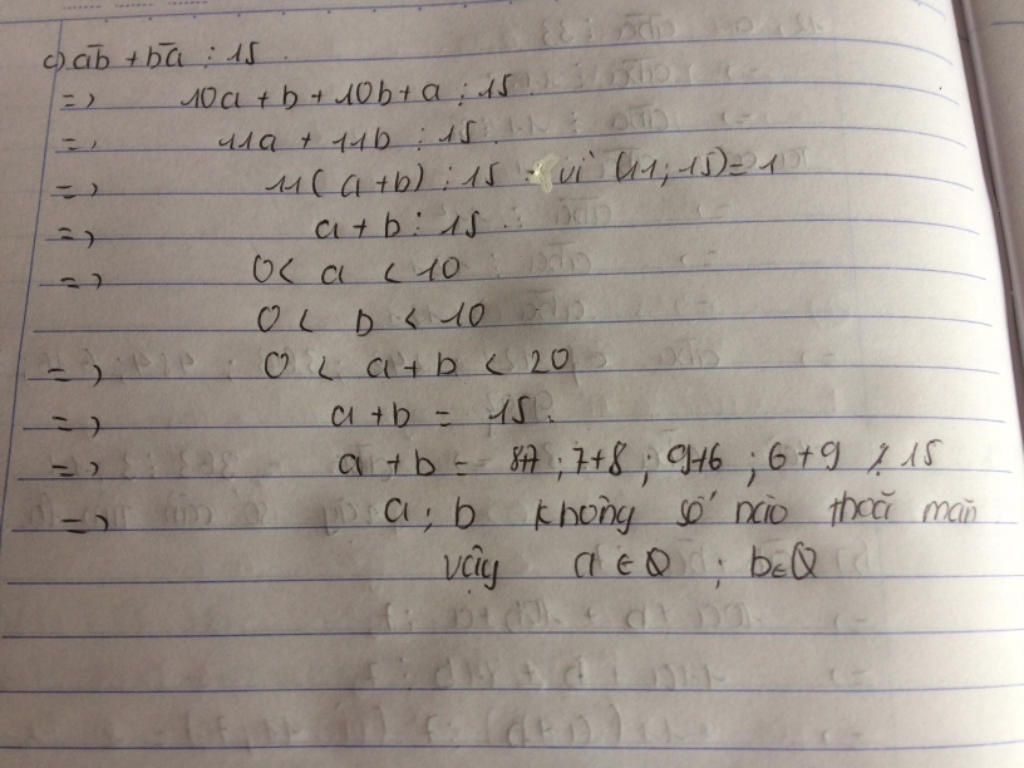 c) a̅b̅ + b̅a̅ ⋮ 15
=> 10a + b + 10b + a ⋮ 15
=> 11a + 11b ⋮ 15
=> 11(a+b) ⋮ 15 vì (11; 15) = 1
=> a + b ⋮ 15
=> 0 < a < 10
0 < b < 10
=> 0 < a + b < 20
=> a + b = 15.
=> a + b = 8+7 ; 7+8 ; 9+6 ; 6+9 ⋮̸ 15
=> a ; b không số nào thoã mãn
vậy a ∈ Q ; b ∈ Q